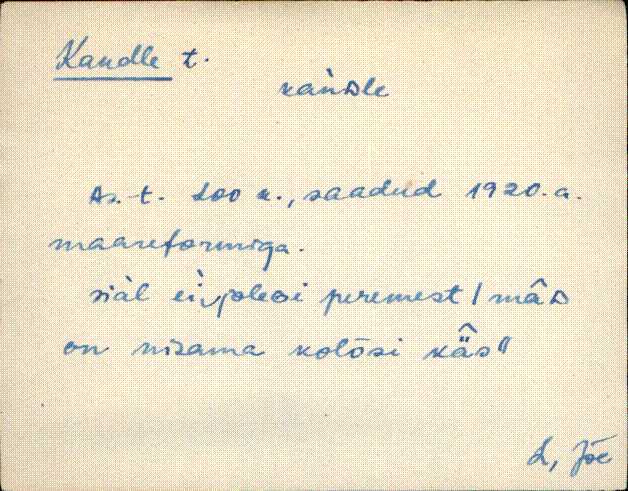 Kandle t.
kàǹᴅle
As. t. Loo k., saadud 1920. a.
maareformiga.
siàl eì‿joleᴅi peremest / mâᴅ
on nisama kolɔ̄si kä̂s"
L, Jõe